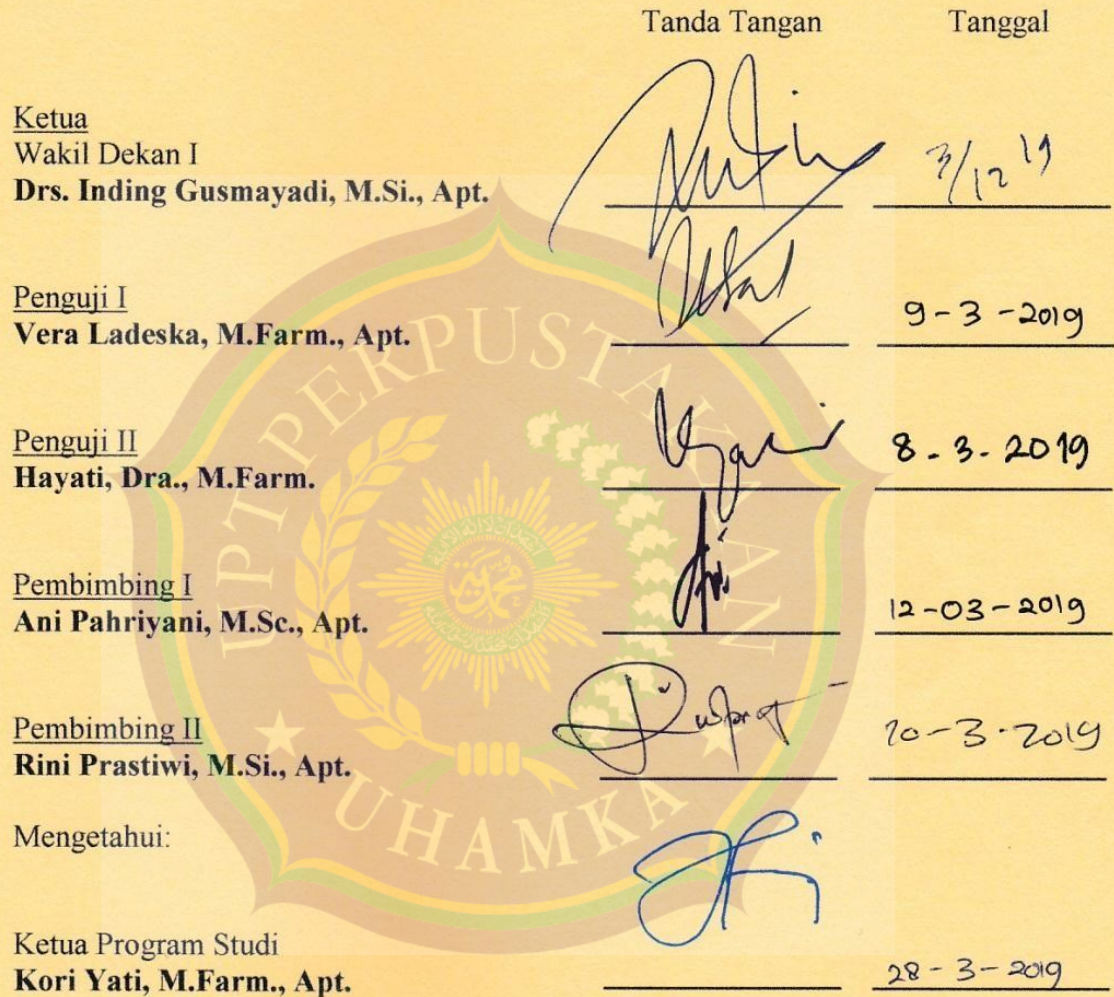 Tanda Tangan Tanggal
Ketua
Wakil Dekan I
Drs. Inding Gusmayadi, M.Si., Apt. 3/12 19
Penguji I
Vera Ladeska, M.Farm., Apt. 9-3-2019
Penguji II
Hayati, Dra., M.Farm. 8.3.2019
Pembimbing I
Ani Pahriyani, M.Sc., Apt. 12-03-2019
Pembimbing II
Rini Prastiwi, M.Si., Apt. 20-3-2019
Mengetahui:
Ketua Program Studi
Kori Yati, M.Farm., Apt. 28-3-2019
UPT PERPUSTAKAAN
UHAMKA